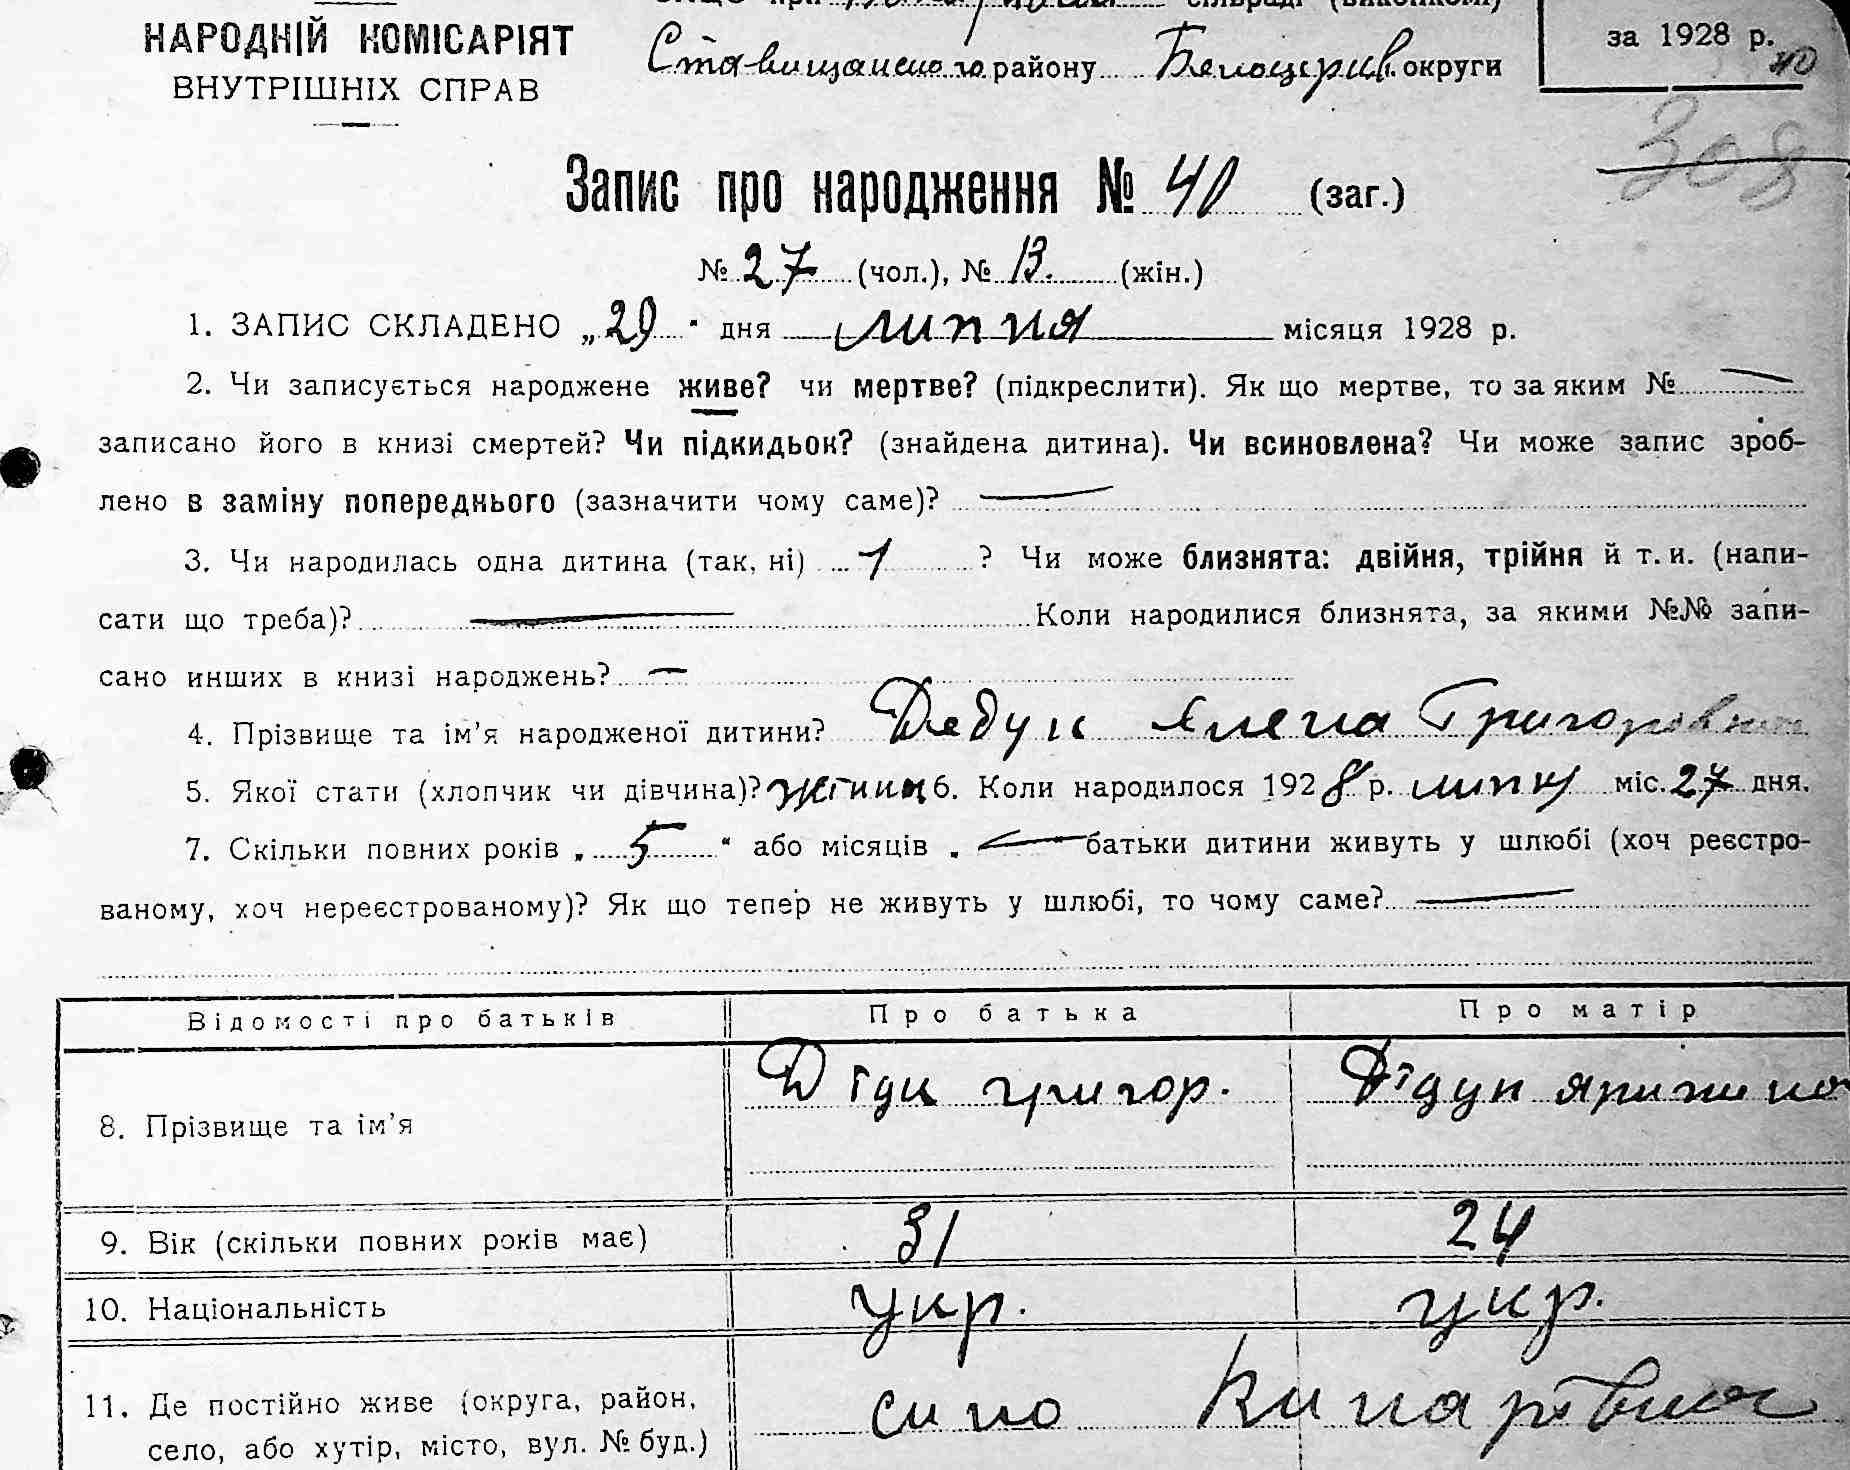 ЗАЦСО при сільраді (виконкомі)
НАРОДНІЙ КОМІСАРІЯТ
ВНУТРІШНІХ СПРАВ
Ставищансько го району Белоцерків округи
за 1928 р.
40
308
Запис про народження № 40 (заг.)
№ 27 (чол.), № 13. (жін.)
1. ЗАПИС СКЛАДЕНО „29" дня липня місяця 1928 р.
2. Чи записується народжене живе? чи мертве? (підкреслити). Як що мертве, то за яким №
записано його в книзі смертей? Чи підкидьок? (знайдена дитина). Чи всиновлена? Чи може запис зроб-
лено в заміну попереднього (зазначити чому саме)?
3. Чи народилась одна дитина (так, ні) 1 ? Чи може близнята: двійня, трійня й т. и. (напи-
сати що треба)? Коли народилися близнята, за якими №№ запи-
сано инших в книзі народжень?
4. Прізвище та ім'я народженої дитини? Дедук Ялена Григоровна
5. Якої стати (хлопчик чи дівчина)? 6. Коли народилося 1928 р. липн міс. 27 дня.
7. Скільки повних років „ 5 " або місяців „ батьки дитини живуть у шлюбі (хоч реєстро-
ваному, хоч нереєстрованому)? Як що тепер не живуть у шлюбі, то чому саме?
Відомості про батьків Про батька Про матір
8. Прізвище та ім'я Дідук григор. Дідук яришна
9. Вік (скільки повних років має) 31 24
10. Національність укр. укр.
11. Де постійно живе (округа, район,
село, або хутір, місто, вул. № буд.)
село